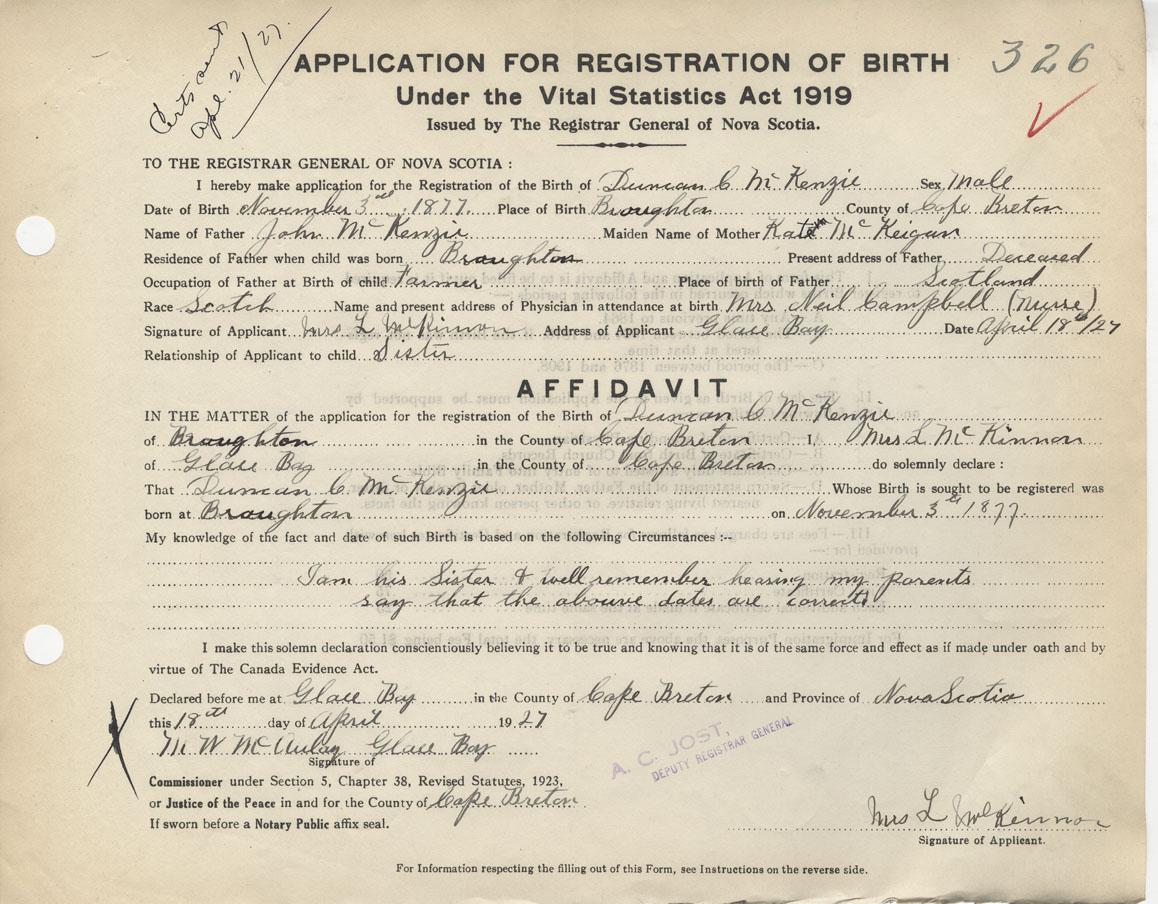 Certs sent
Apl. 21/27.
APPLICATION FOR REGISTRATION OF BIRTH 326
Under the Vital Statistics Act 1919
Issued by The Registrar General of Nova Scotia.
TO THE REGISTRAR GENERAL OF NOVA SCOTIA :
I hereby make application for the Registration of the Birth of Duncan C McKenzie Sex Male
Date of Birth November 3rd 1877. Place of Birth Broughton County of Cape Breton
Name of Father John McKenzie Maiden Name of Mother Kate McKeigan
Residence of Father when child was born Broughton Present address of Father, Deceased
Occupation of Father at Birth of child Farmer Place of birth of Father Scotland
Race Scotch Name and present address of Physician in attendance at birth Mrs Neil Campbell (Nurse)
Signature of Applicant Mrs L McKinnon Address of Applicant Glace Bay Date April 18th/27
Relationship of Applicant to child Sister
AFFIDAVIT
IN THE MATTER of the application for the registration of the Birth of Duncan C McKenzie
of Broughton in the County of Cape Breton I, Mrs L McKinnon
of Glace Bay in the County of Cape Breton do solemnly declare :
That Duncan C McKenzie Whose Birth is sought to be registered was
born at Broughton on November 3rd 1877.
My knowledge of the fact and date of such Birth is based on the following Circumstances :--
I am his Sister & well remember hearing my parents
say that the abouve dates are correct
I make this solemn declaration conscientiously believing it to be true and knowing that it is of the same force and effect as if made under oath and by
virtue of The Canada Evidence Act.
Declared before me at Glace Bay in the County of Cape Breton and Province of Nova Scotia
this 18th day of April 1927
M W McAulay Glace Bay
Signature of
A. C. JOST,
DEPUTY REGISTRAR GENERAL
Commissioner under Section 5, Chapter 38, Revised Statutes, 1923,
or Justice of the Peace in and for the County of Cape Breton
If sworn before a Notary Public affix seal.
Mrs L McKinnon
Signature of Applicant.
For Information respecting the filling out of this Form, see Instructions on the reverse side.